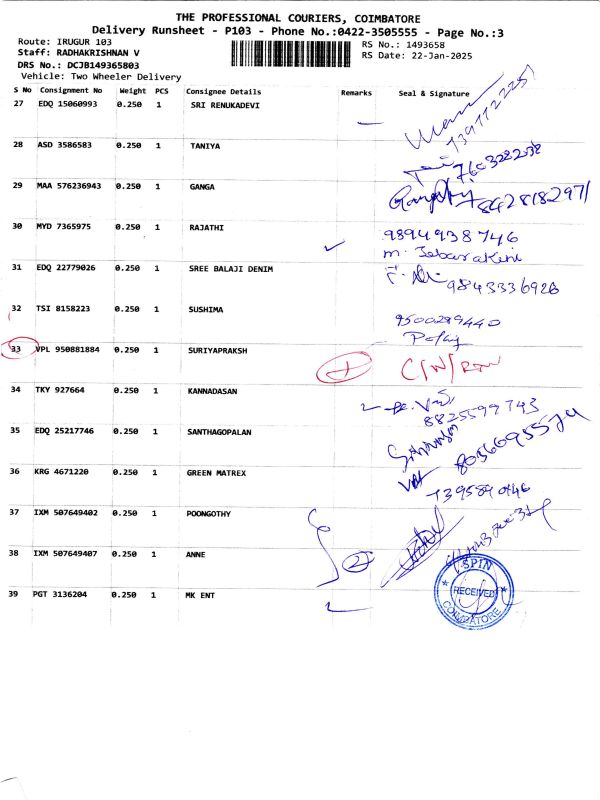 THE PROFESSIONAL COURIERS, COIMBATORE
Delivery Runsheet - P103 - Phone No.:0422-3505555 - Page No.:3
Route: IRUGUR 103
Staff: RADHAKRISHNAN V
DRS No.: DCJB149365803
Vehicle: Two Wheeler Delivery
RS No.: 1493658
RS Date: 22-Jan-2025
S No Consignment No Weight PCS Consignee Details Remarks Seal & Signature
27 EDQ 15060993 0.250 1 SRI RENUKADEVI
28 ASD 3586583 0.250 1 TANIYA
29 MAA 576236943 0.250 1 GANGA 8428182971
30 MYD 7365975 0.250 1 RAJATHI 9894938746
31 EDQ 22779026 0.250 1 SREE BALAJI DENIM 9843336926
32 TSI 8158223 0.250 1 SUSHIMA 9500289440
33 VPL 950881884 0.250 1 SURIYAPRAKSH
34 TKY 927664 0.250 1 KANNADASAN 8825599743
35 EDQ 25217746 0.250 1 SANTHAGOPALAN
36 KRG 4671220 0.250 1 GREEN MATREX
37 IXM 507649402 0.250 1 POONGOTHY
38 IXM 507649407 0.250 1 ANNE 2
39 PGT 3136204 0.250 1 MK ENT
SPIN
RECEIVED
COIMBATORE